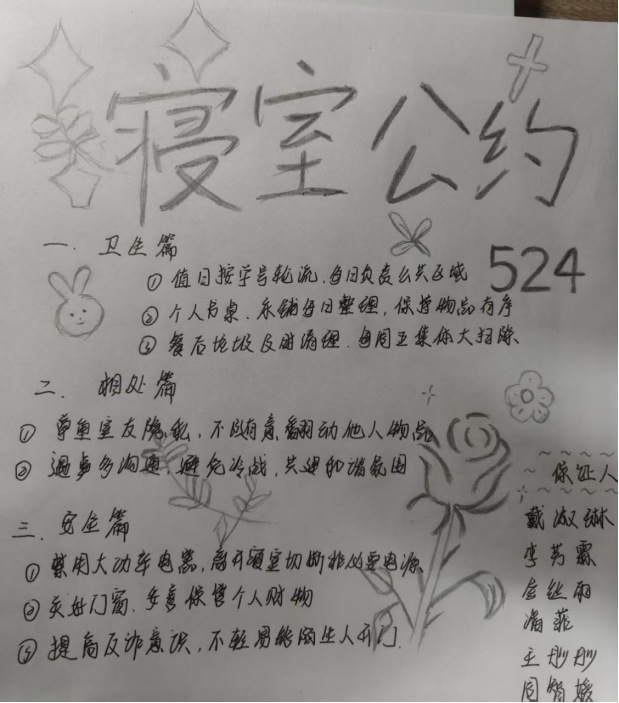 寝室公约
524
一、卫生篇
①值日按学号轮流,每日负责公共区域
②个人书桌、床铺每日整理,保持物品有序
③餐后垃圾及时清理,每周五集体大扫除
二、相处篇
①尊重室友隐私,不随意翻动他人物品
②遇事多沟通,避免冷战,共建和谐氛围
三、安全篇
①禁用大功率电器,离开寝室切断非必要电源
②关好门窗,妥善保管个人财物
③提高反诈意识,不轻易给陌生人开门
保证人
戴淑琳
李芳霖
雨
菲
王彤彤
周智媛